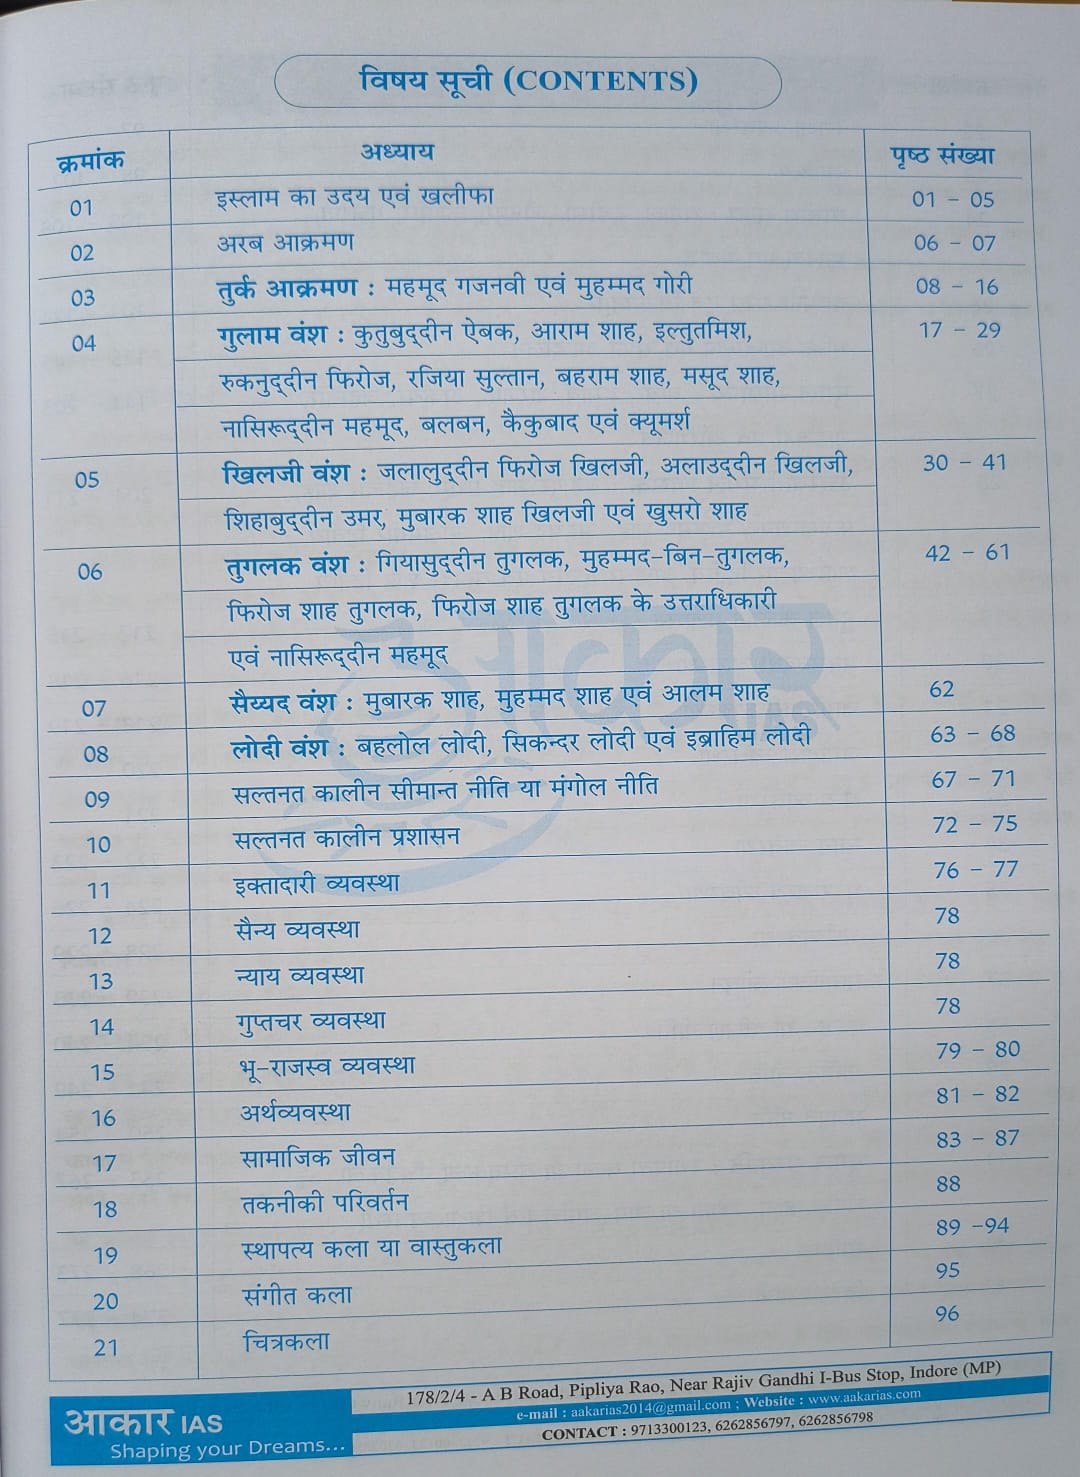 विषय सूची (CONTENTS)
क्रमांक अध्याय पृष्ठ संख्या
01 इस्लाम का उदय एवं खलीफा 01 - 05
02 अरब आक्रमण 06 - 07
03 तुर्क आक्रमण : महमूद गजनवी एवं मुहम्मद गोरी 08 - 16
04 गुलाम वंश : कुतुबुद्दीन ऐबक, आराम शाह, इल्तुतमिश, 17 - 29
रुकनुद्दीन फिरोज, रजिया सुल्तान, बहराम शाह, मसूद शाह,
नासिरूद्दीन महमूद, बलबन, कैकुबाद एवं क्यूमर्श
05 खिलजी वंश : जलालुद्दीन फिरोज खिलजी, अलाउद्दीन खिलजी, 30 - 41
शिहाबुद्दीन उमर, मुबारक शाह खिलजी एवं खुसरो शाह
06 तुगलक वंश : गियासुद्दीन तुगलक, मुहम्मद-बिन-तुगलक, 42 - 61
फिरोज शाह तुगलक, फिरोज शाह तुगलक के उत्तराधिकारी
एवं नासिरूद्दीन महमूद
07 सैय्यद वंश : मुबारक शाह, मुहम्मद शाह एवं आलम शाह 62
08 लोदी वंश : बहलोल लोदी, सिकन्दर लोदी एवं इब्राहिम लोदी 63 - 68
09 सल्तनत कालीन सीमान्त नीति या मंगोल नीति 67 - 71
10 सल्तनत कालीन प्रशासन 72 - 75
11 इक्तादारी व्यवस्था 76 - 77
12 सैन्य व्यवस्था 78
13 न्याय व्यवस्था 78
14 गुप्तचर व्यवस्था 78
15 भू-राजस्व व्यवस्था 79 - 80
16 अर्थव्यवस्था 81 - 82
17 सामाजिक जीवन 83 - 87
18 तकनीकी परिवर्तन 88
19 स्थापत्य कला या वास्तुकला 89 -94
20 संगीत कला 95
21 चित्रकला 96
आकार IAS
Shaping your Dreams...
178/2/4 - A B Road, Pipliya Rao, Near Rajiv Gandhi I-Bus Stop, Indore (MP)
e-mail : aakarias2014@gmail.com ; Website : www.aakarias.com
CONTACT : 9713300123, 6262856797, 6262856798